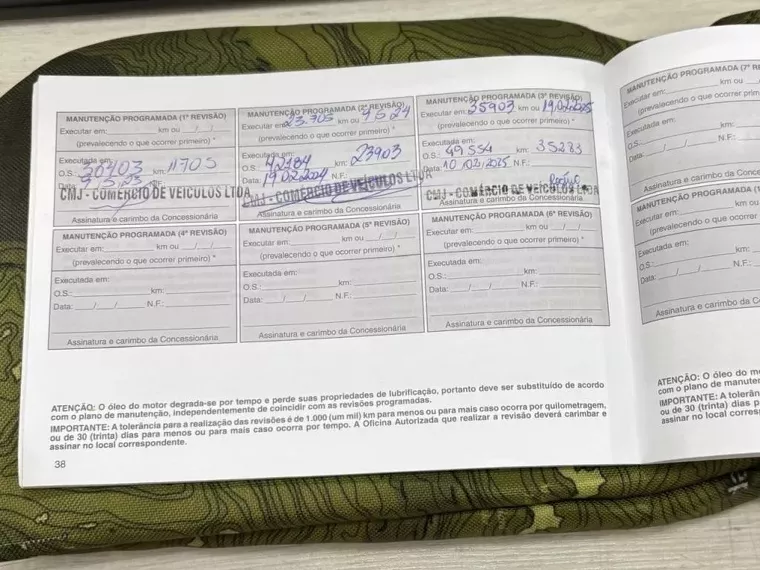 MANUTENÇÃO PROGRAMADA (1ª REVISÃO)
Executar em: km ou / /
(prevalecendo o que ocorrer primeiro) *
Executada em:
O.S.: 30403 km: 11705
Data:
CMJ - COMÉRCIO DE VEÍCULOS LTDA
Assinatura e carimbo da Concessionária
MANUTENÇÃO PROGRAMADA (2ª REVISÃO)
Executar em: 23.705 km ou 9 5 24
(prevalecendo o que ocorrer primeiro) *
Executada em:
O.S.: 42184 km: 23903
Data: 19.02.2024 N.F.:
CMJ - COMÉRCIO DE VEÍCULOS LTDA
Assinatura e carimbo da Concessionária
MANUTENÇÃO PROGRAMADA (3ª REVISÃO)
Executar em: 35903 km ou 19.02.2025
(prevalecendo o que ocorrer primeiro) *
Executada em:
O.S.: 49554 km: 35283
Data: 10/02/2025 N.F.:
CMJ - COMÉRCIO DE VEÍCULOS LTDA
Assinatura e carimbo da Concessionária
MANUTENÇÃO PROGRAMADA (4ª REVISÃO)
Executar em: km ou / /
(prevalecendo o que ocorrer primeiro) *
Executada em:
O.S.: km:
Data: / / N.F.:
Assinatura e carimbo da Concessionária
MANUTENÇÃO PROGRAMADA (5ª REVISÃO)
Executar em: km ou / /
(prevalecendo o que ocorrer primeiro) *
Executada em:
O.S.: km:
Data: / / N.F.:
Assinatura e carimbo da Concessionária
MANUTENÇÃO PROGRAMADA (6ª REVISÃO)
Executar em: km ou / /
(prevalecendo o que ocorrer primeiro) *
Executada em:
O.S.: km:
Data: / / N.F.:
Assinatura e carimbo da Concessionária
ATENÇÃO: O óleo do motor degrada-se por tempo e perde suas propriedades de lubrificação, portanto deve ser substituído de acordo
com o plano de manutenção, independentemente de coincidir com as revisões programadas.
IMPORTANTE: A tolerância para a realização das revisões é de 1.000 (um mil) km para menos ou para mais caso ocorra por quilometragem,
ou de 30 (trinta) dias para menos ou para mais caso ocorra por tempo. A Oficina Autorizada que realizar a revisão deverá carimbar e
assinar no local correspondente.
38
MANUTENÇÃO PROGRAMADA (7ª
Executar em: km ou
(prevalecendo o que ocorrer
Executada em:
O.S.: km:
Data: / / N.F.:
Assinatura e carimbo da
MANUTENÇÃO PROGRAMADA
Executar em: km ou
(prevalecendo o que ocorrer
Executada em:
O.S.: km:
Data: / / N.F.:
Assinatura e carimbo da
ATENÇÃO: O óleo do
com o plano de
IMPORTANTE: A
ou de 30 (trinta) dias
assinar no local